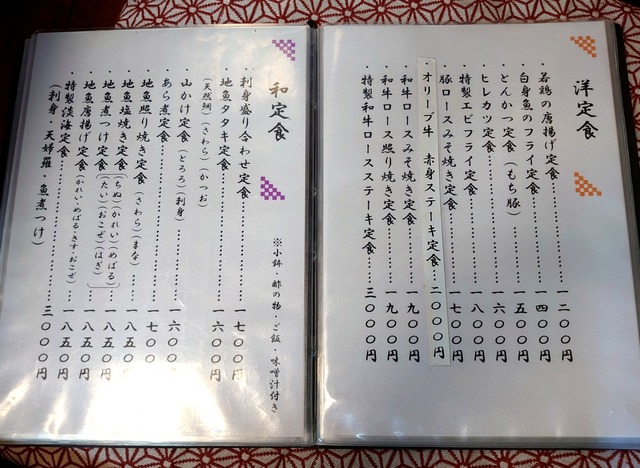 洋定食
・若鶏の唐揚げ定食……………一二〇〇円
・白身魚のフライ定食……………一四〇〇円
・とんかつ定食(もち豚)……………一五〇〇円
・ヒレカツ定食……………一六〇〇円
・特製エビフライ定食……………一八〇〇円
・豚ロースみそ焼き定食……………一七〇〇円
・オリーブ牛 赤身ステーキ定食……二〇〇〇円
・和牛ロースみそ焼き定食……………一九〇〇円
・和牛ロース照り焼き定食……………一九〇〇円
・特製和牛ロースステーキ定食……………三〇〇〇円
和定食
※小鉢 酢の物・ご飯・味噌汁付き
・刺身盛り合わせ定食……………一七〇〇円
・地魚タタキ定食……………一六〇〇円
(天然鯛)(さわら)(かつお)
・山かけ定食(とろろ)(刺身)……………一六〇〇円
・あら煮定食……………一七〇〇円
・地魚照り焼き定食(さわら)(まな)……………一八五〇円
・地魚塩焼き定食(ちぬ)(かれい)(めばる)……一八五〇円
・地魚煮つけ定食(たい)(おこぜ)(はぎ)……一八五〇円
・地魚唐揚げ定食(かれい・めばる・きす・おこぜ)…一八五〇円
・特製淡海定食……………三〇〇〇円
(刺身 天婦羅・魚煮つけ)